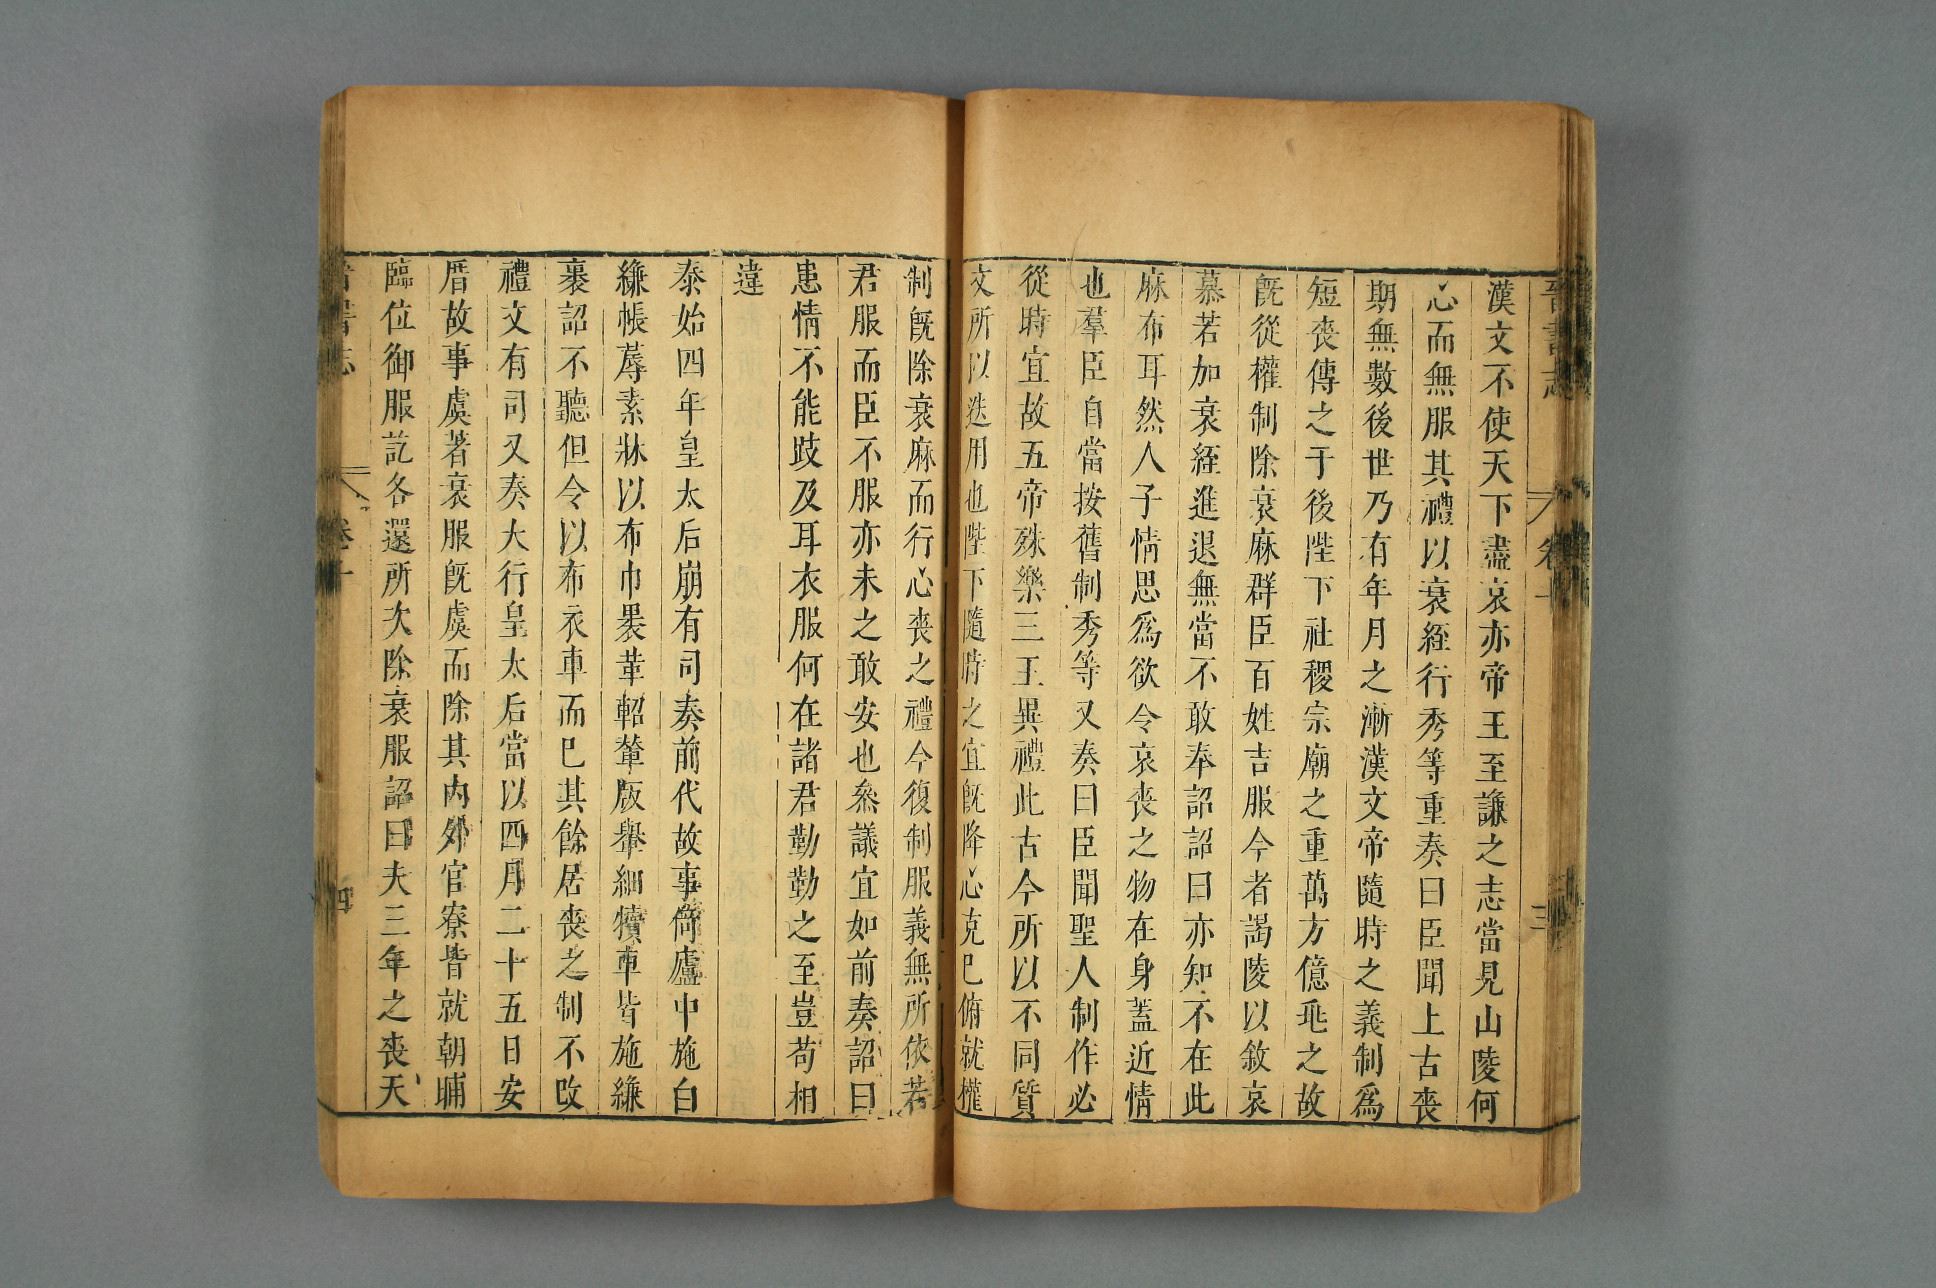 晉書志 卷十 三
漢文不使天下盡哀亦帝王至謙之志當見山陵何
心而無服其禮以衰絰行秀等重奏曰臣聞上古喪
期無數後世乃有年月之漸漢文帝隨時之義制爲
短喪傳之于後陛下社稷宗廟之重萬方億兆之故
旣從權制除衰麻群臣百姓吉服今者謁陵以敘哀
慕若加衰絰進退無當不敢奉詔詔曰亦知不在此
麻布耳然人子情思爲欲令哀喪之物在身蓋近情
也羣臣自當按舊制秀等又奏曰臣聞聖人制作必
從時宜故五帝殊樂三王異禮此古今所以不同質
文所以迭用也陛下隨時之宜旣降心克己俯就權
制旣除衰麻而行心喪之禮今復制服義無所依若
君服而臣不服亦未之敢安也叅議宜如前奏詔曰
患情不能跂及耳衣服何在諸君勤勤之至豈苟相
違
泰始四年皇太后崩有司奏前代故事倚廬中施白
縑帳蓐素牀以布巾裹菫軺輦版轝細犢車皆施縑
裹詔不聽但令以布衣車而已其餘居喪之制不改
禮文有司又奏大行皇太后當以四月二十五日安
厝故事虞著衰服旣虞而除其內外官寮皆就朝晡
臨位御服訖各還所次除衰服詔曰夫三年之喪天
晉書志 卷十 四